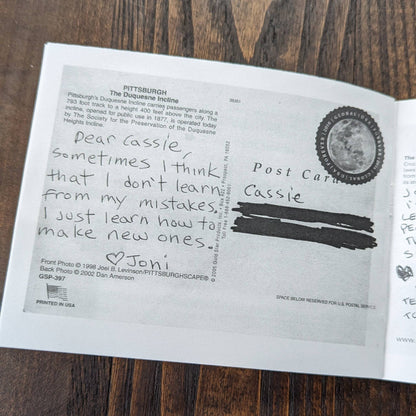 PITTSBURGH
The Duquesne Incline
Pittsburgh's Duquesne Incline carries passengers along a
793 foot track to a height 400 feet above the city. The
incline, opened for public use in 1877, is operated today
by The Society for the Preservation of the Duquesne
Heights Incline.
Dear Cassie,
sometimes I think
that I don't learn
from my mistakes.
I just learn how to
make new ones.
♡Joni
Front Photo © 1998 Joel B. Levinson/PITTSBURGHSCAPE®
Back Photo © 2002 Dan Amerson
GSP-397
PRINTED IN USA
Post Card
Cassie
SPACE BELOW RESERVED FOR U.S. POSTAL SERVICE
GLOBAL
The
www.